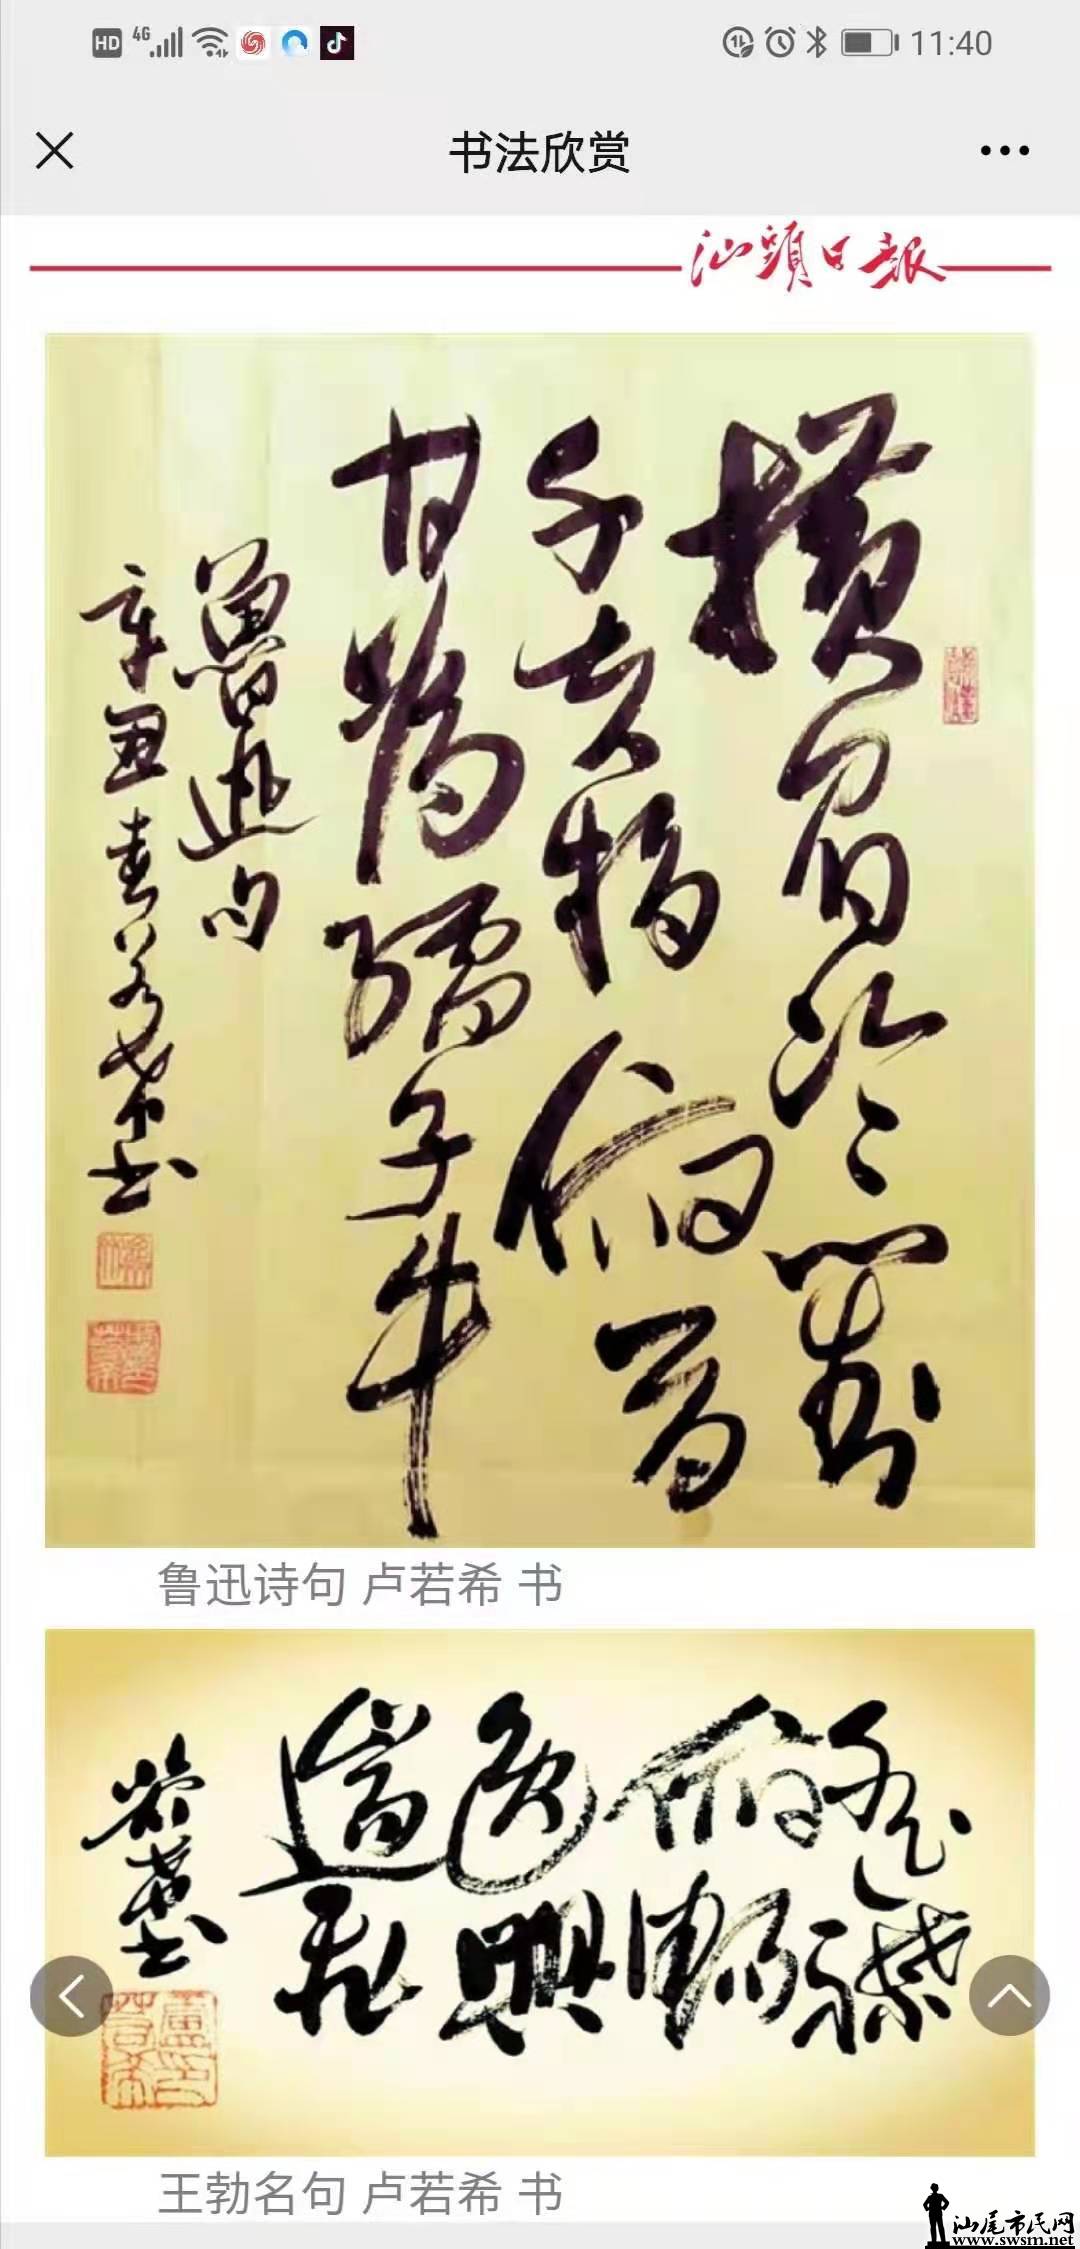 HD 4G 11:40
书法欣赏
汕頭日報
横眉冷對
千夫指俯首
甘為孺子牛
魯迅句
辛丑春若希书
鲁迅诗句 卢若希 书
遥襟俯畅
逸興遄飛
若希书
王勃名句 卢若希 书
汕尾市民网
www.swsm.net